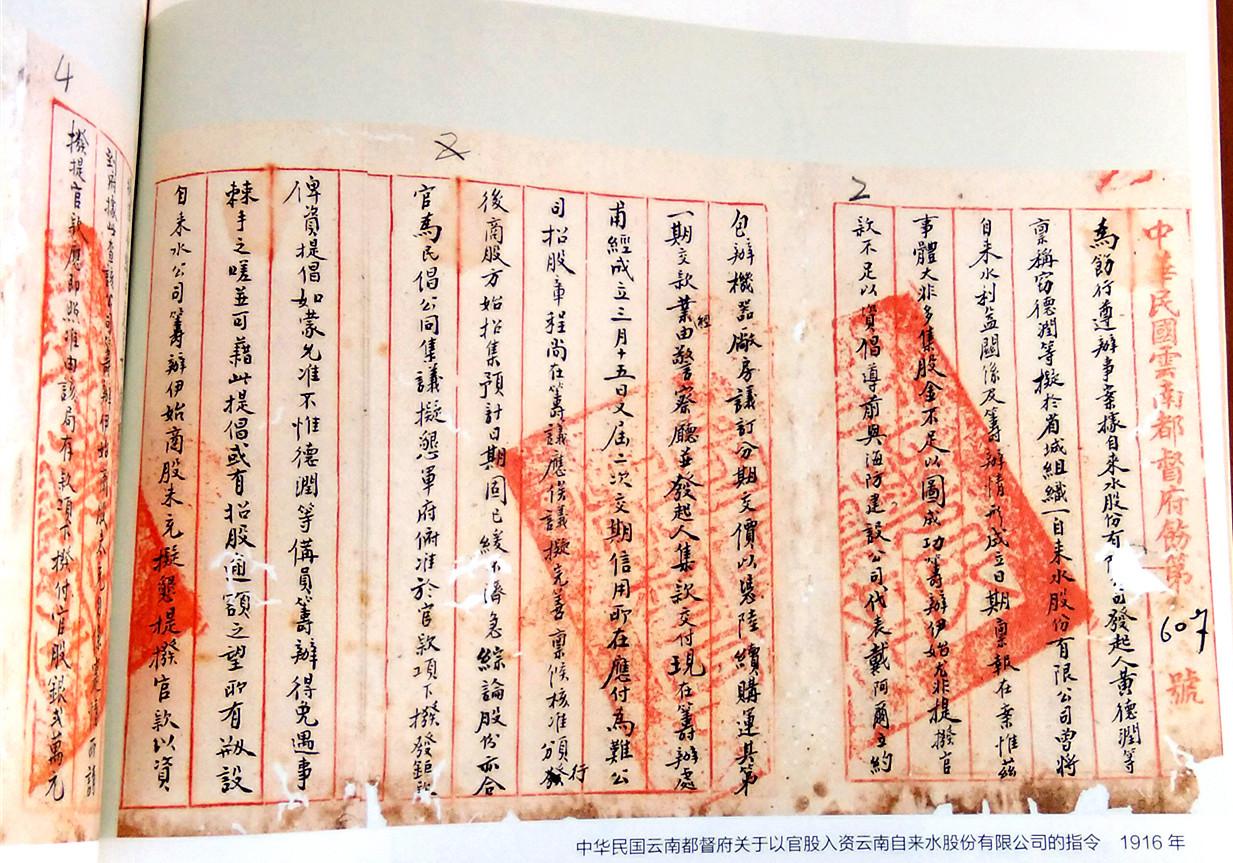 中華民國雲南都督府飭第607號
為飭行遵辦事案據自来水股份有限公司發起人黃德潤等
禀稱竊德潤等擬於省城組織一自来水股份有限公司曾將
自来水利益關係及籌辦情形成立日期禀報在案惟茲
事體大非多集股金不足以圖成功籌辦伊始尤非提撥官
款不足以資倡導前與海防建設公司代表戴阿爾立約
包辦機器廠房議訂分期交價以憑陸續購運其第
一期交款業經由警察廳並發起人集款交付現在籌辦處
甫經成立三月十五日又屆二次交期信用所在應付為難公
司招股章程尚在籌議應俟議擬完善禀候核准頒發行
後商股方始招集預計日期固已緩不濟急綜論股份亦合
官為民倡公同集議擬懇軍府俯准於官款項下撥發鉅款
俾資提倡如蒙允准不惟德潤等備員籌辦得免遇事
棘手之嗟並可藉此提倡或有招股逾額之望所有瓶設
自来水公司籌辦伊始商股未充擬懇提撥官款以資
到府據此查該公司籌辦伊始商股未充
撥提官款應即照准由該局存款項下撥付官股銀弍萬元
2
2
4
中华民国云南都督府关于以官股入资云南自来水股份有限公司的指令 1916年